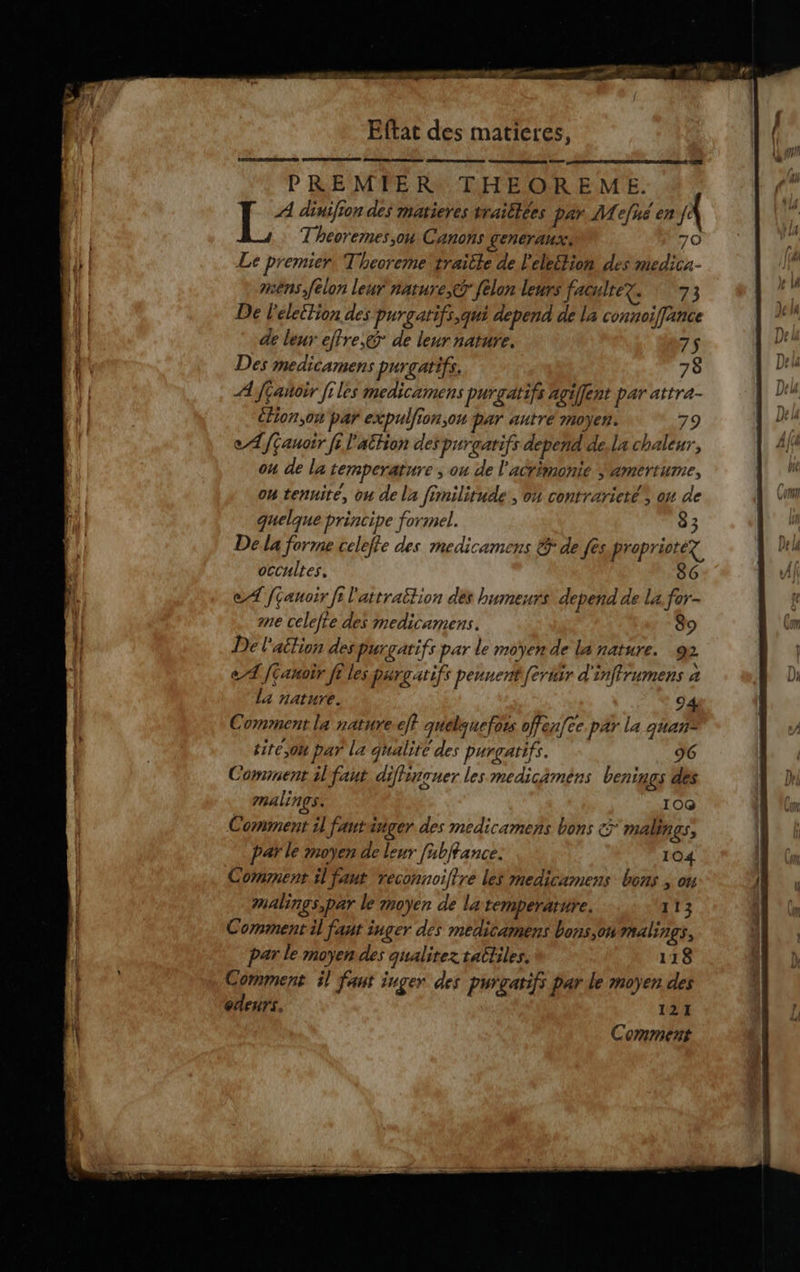 Eſtat des matieres,
PREMIER THEOREME.
LA diuiſion des matieres traictées par Meſué en ſa
Theoremes,ou Canons generaux. 70
Le premier Theoreme traicte de l'election des medica-
mens,ſelon leur nature,& ſelon leurs facultez. 73
De l'election des purgatifs,qui depend de la connoiſſance
de leur eſtre,& de leur nature. 75
Des medicamens purgatifs. 78
A ſçauoir ſi les medicamens purgatifs agiſſent par attra-
ction,ou par expulſion,ou par autre moyen. 79
A ſçauoir ſi l'action des purgatifs depend de la chaleur,
ou de la temperature , ou de l'acrimonie , amertume,
ou tenuité, ou de la ſimilitude , ou contrarieté , ou de
quelque principe formel. 83
De la forme celeſte des medicamens & de ſes proprietéz
occultes. 86
A ſçauoir ſi l'attraction des humeurs depend de la for-
me celeſte des medicamens. 89
De l'action des purgatifs par le moyen de la nature. 92
A ſçauoir ſi les purgatifs peuuent ſeruir d'inſtrumens a
la nature. 94
Comment la nature eſt quelquefois offenſée par la quan-
tité,ou par la qualité des purgatifs. 96
Comment il faut diſtinguer les medicaméns benings des
malings. 100
Comment il faut iuger des medicamens bons & malings,
par le moyen de leur ſubſtance. 104
Comment il faut reconnoiſtre les medicamens bons , ou
malings,par le moyen de la temperature. 113
Comment il faut iuger des medicamens bons,ou malings,
par le moyen des qualitez tactiles. 118
Comment il faut iuger des purgatifs par le moyen des
odeurs. 121
Comment